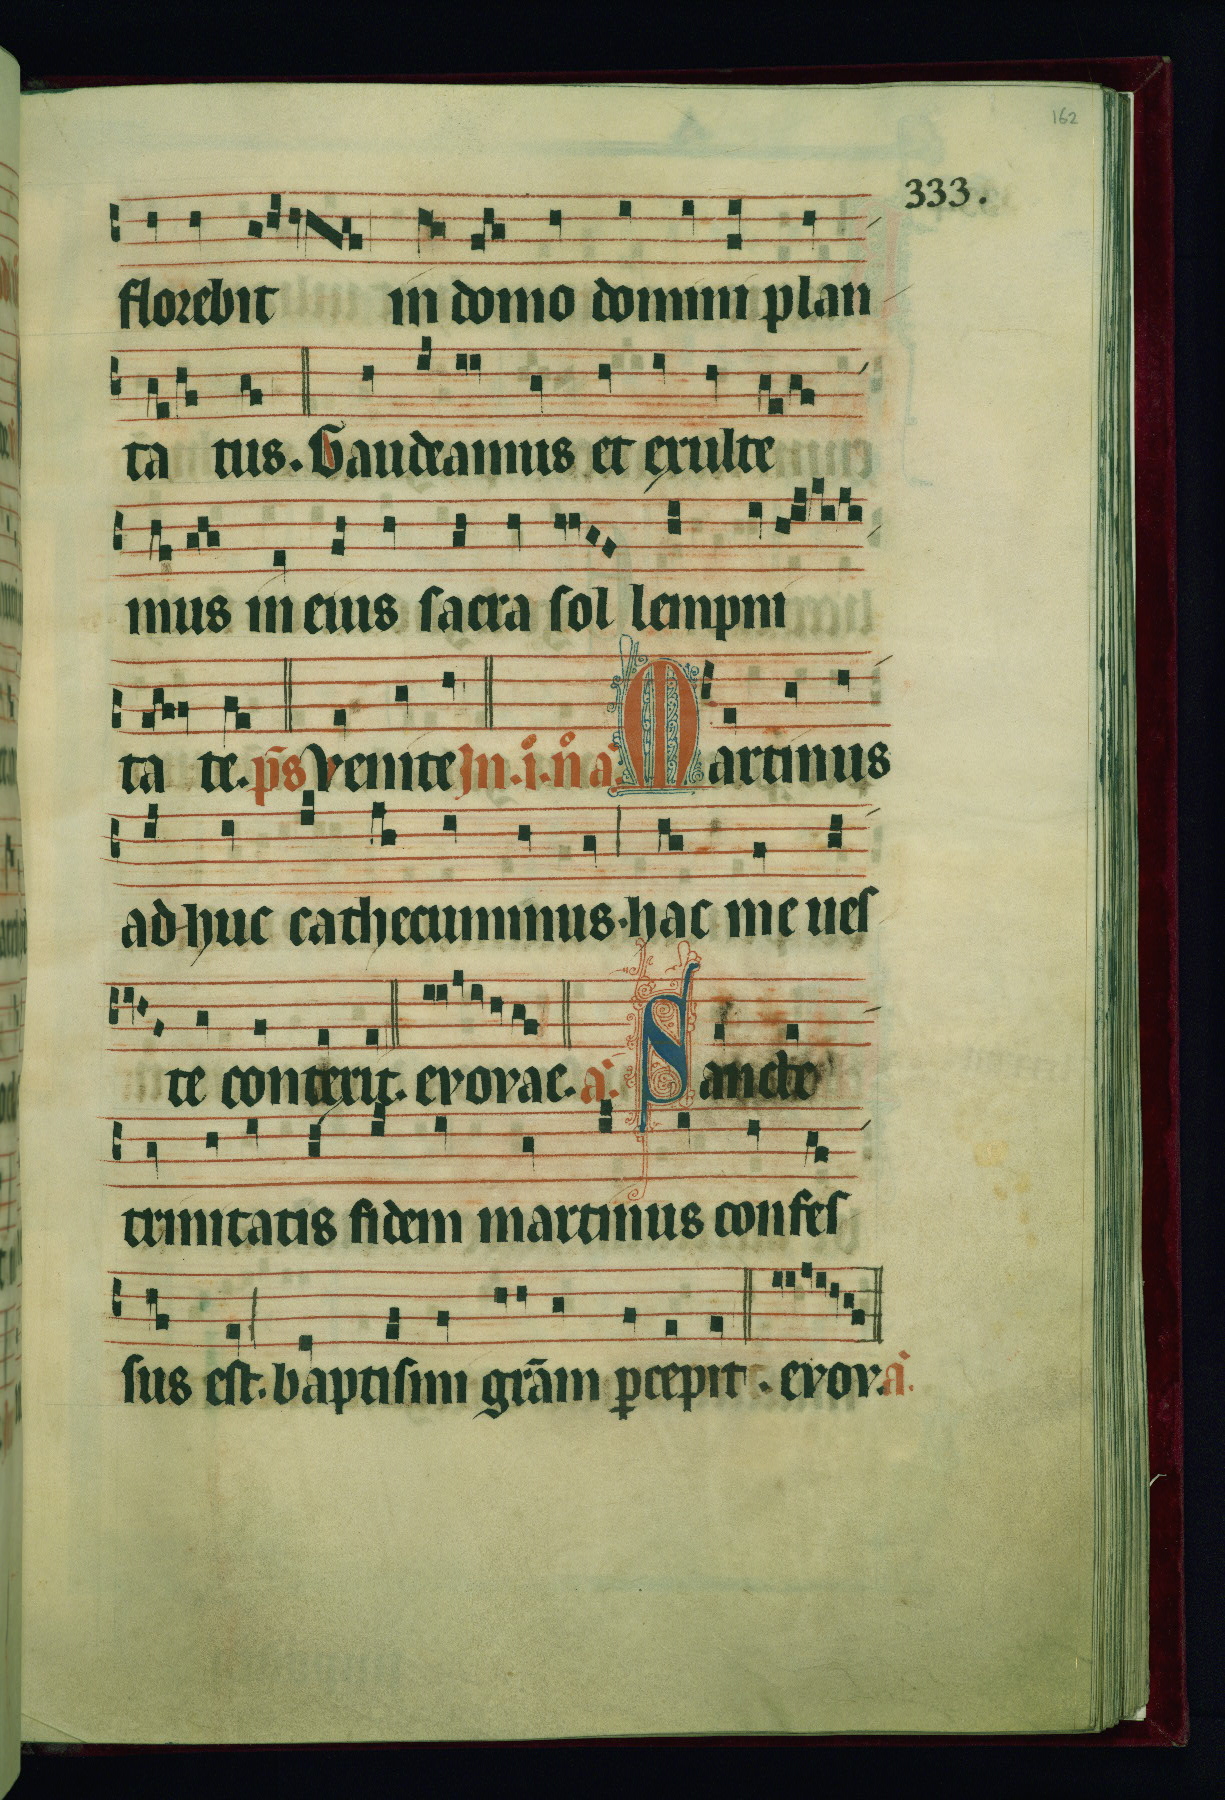 162
333.
florebit in domo domini plan
ta tus. Gaudeamus et exulte
mus in eius sacra sol lempni
ta te. p̄s venite In .i. n̊ a. Martinus
ad huc cathecuminus. hac me ues
te contexit. evovae. a. Sancte
trinitatis fidem martinus confes
sus est. baptismi grām pcepit. evov. a.